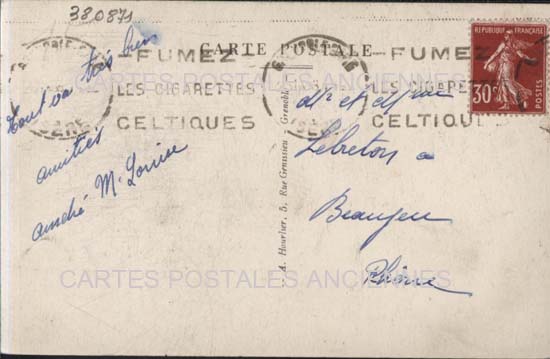 380871
CARTE POSTALE
FUMEZ
LES CIGARETTES
CELTIQUES
FUMEZ
LES CIGARE
CELTIQU
REPUBLIQUE FRANÇAISE
30c
POSTES
Tout va très bien
amitiés
andré M. Louise
Mr et Mme
Lebreton a
Beaujeu
Rhône
A. Hourlier, 5, Rue Genissieu Grenoble
ISERE
CARTES POSTALES ANCIENNES
CARTES POSTALES ANCIENNES